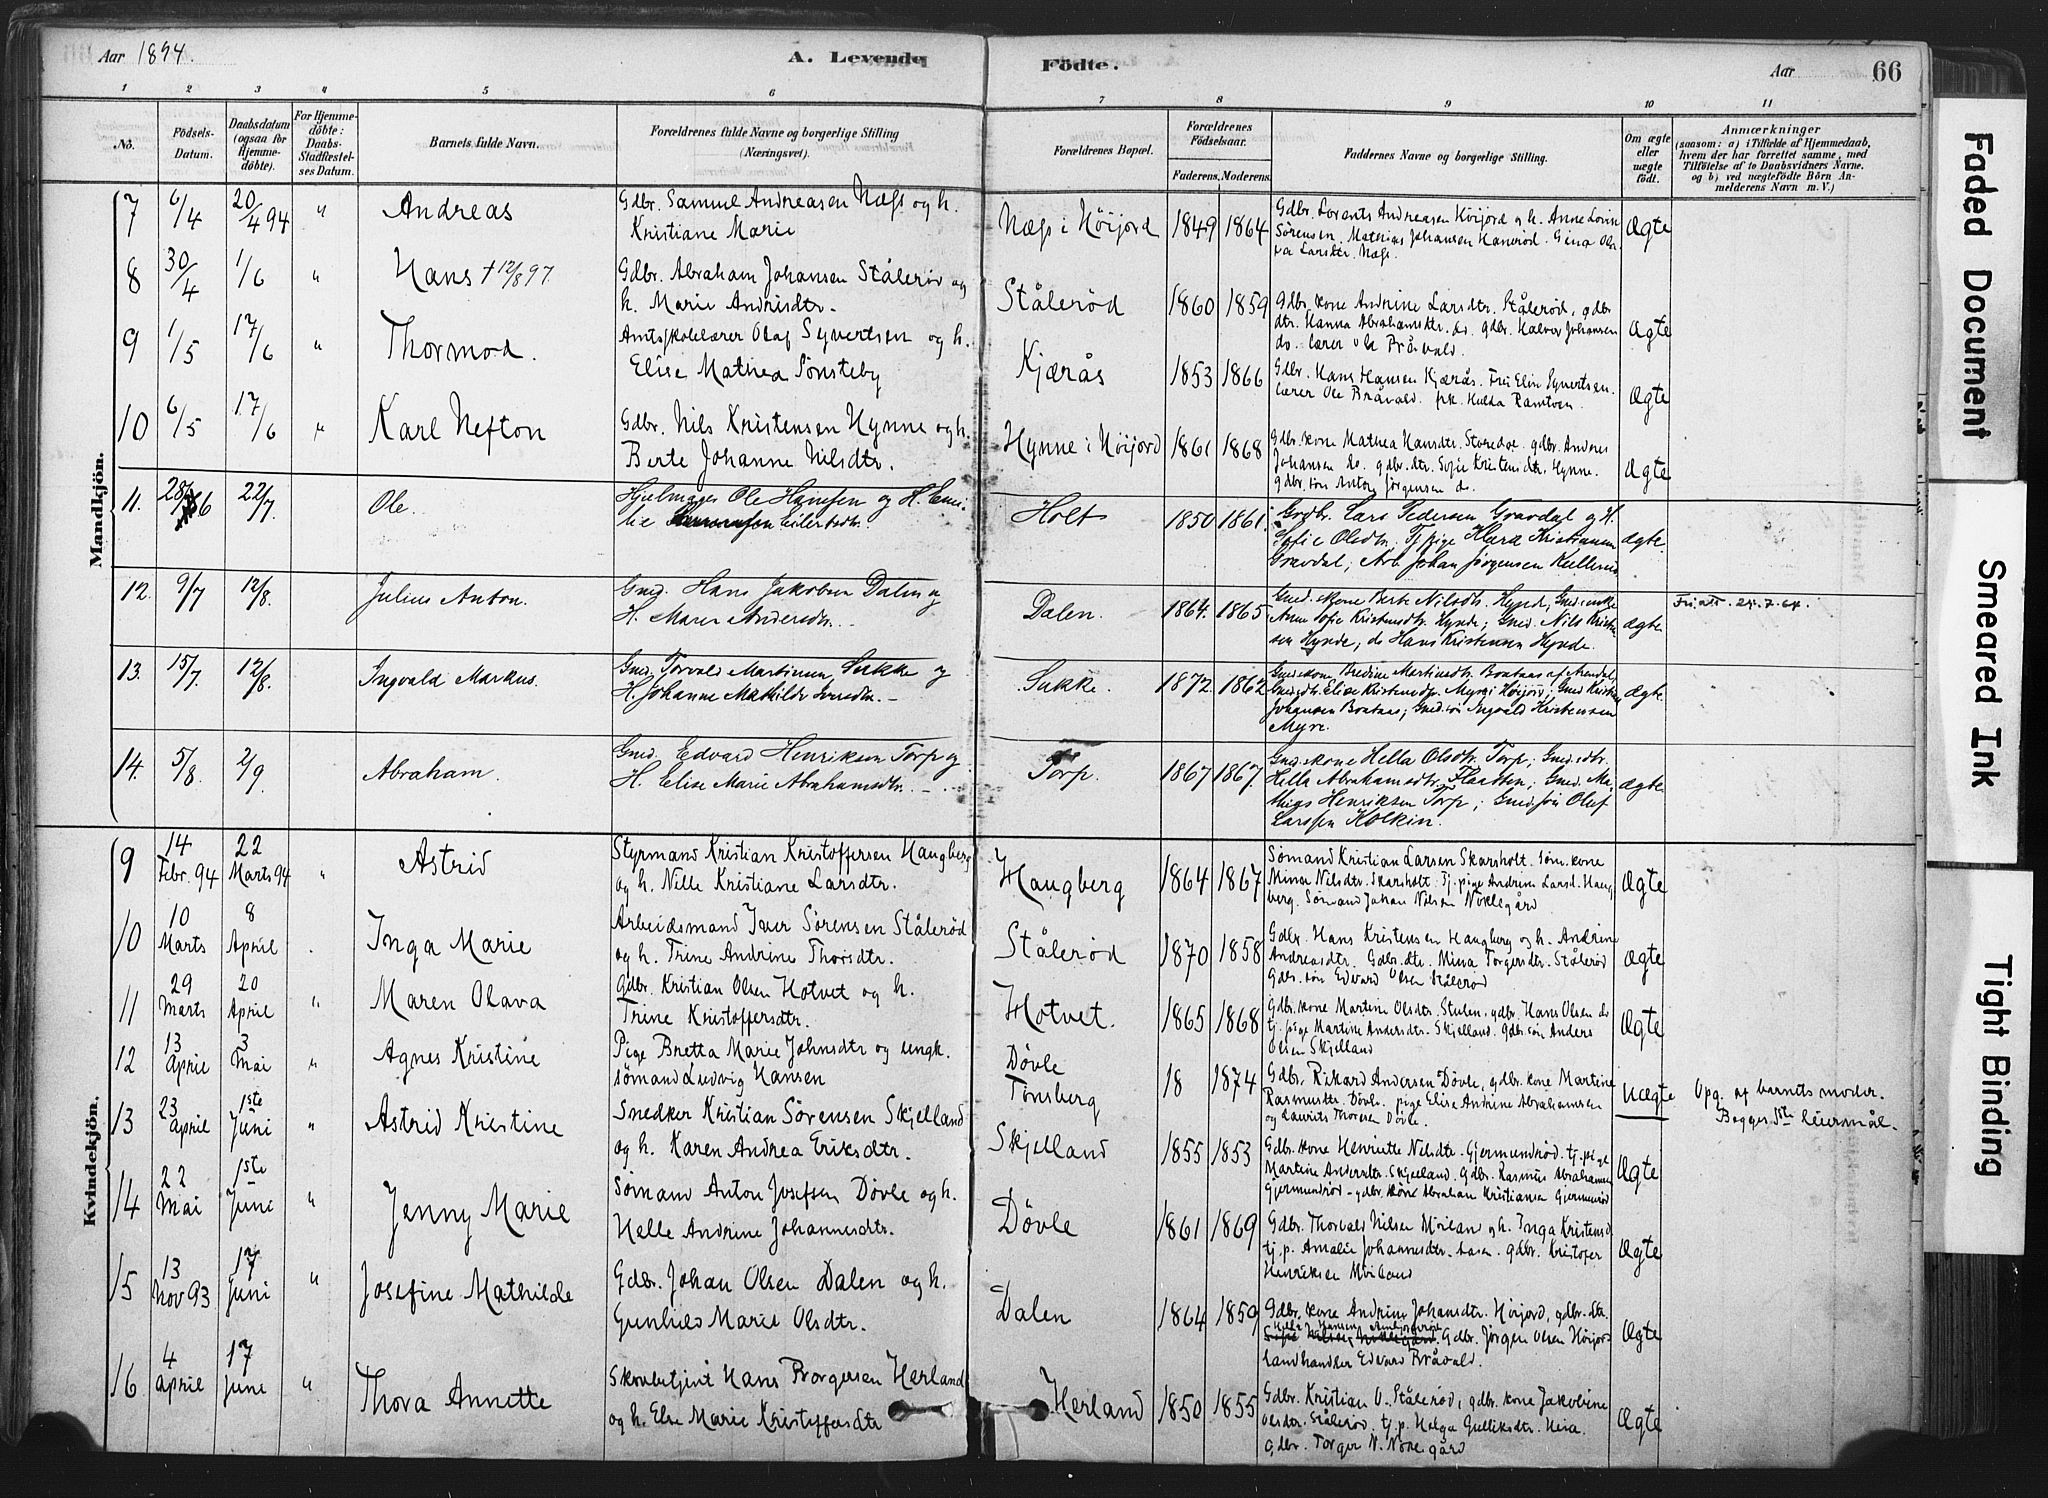 Aar 1894.
A. Levende Födte.
Aar
66
1 2 3 4 5 6 7 8 9 10 11
No.
Födsels-Datum.
Daabsdatum (ogsaa for Hjemme-døbte).
For Hjemme-døbte: Daabs-Stadfæstel-ses Datum.
Barnets fulde Navn.
Forældrenes fulde Navne og borgerlige Stilling (Næringsvei).
Forældrenes Bopæl.
Forældrenes Födselsaar.
Faderens. Moderens.
Faddernes Navne og borgerlige Stilling.
Om ægte eller uægte födt.
Anmærkninger
(saasom: a) i Tilfælde af Hjemmedaab, hvem der har forrettet samme, med Tilföielse af to Daabsvidners Navne, og b) ved uægtefödte Börn An-melderens Navn m. V.)
Mandkjön.
7 6/4 20/4 94 " Andreas
Gdbr. Samuel Andreasen Næss og h.
Kristiane Marie
Næss i Höijord 1849 1864
Gdbr. Lorents Andreasen Höijord og h. Anne
Sørensen. Mathias Johansen Hanerød. Gina
Larsdtr. Næss.
Ægte
8 30/4 1/6 " Hans † 12/8 97.
Gdbr. Abraham Johansen Stålerød og
h. Marie Andrisdtr.
Stålerød 1860 1859
Gdbr. kone Andrine Larsdtr. Stålerød, gdbr
dtr. Hanna Abrahamsdtr. do. gdbr. Halvor Johansen
do. lærer Ole Bråvald.
Ægte
9 1/5 17/6 " Thormod.
Amtsskolelærer Olaf Syvertsen og h.
Elise Mathea Sönsteby
Kjærås 1853 1866
Gdbr. Hans Hansen Kjærås. Frk Elin Syvertsen.
lærer Ole Bråvald. frk. Hulda Ramtven.
Ægte
10 6/5 17/6 " Karl Nefton
Gdbr. Nils Kristensen Hynne og h.
Berte Johanne Nilsdtr.
Hynne i Höijord 1861 1868
Gdbr. kone Mathea Hansdtr. Storedal. gdbr. Andreas
Johansen do. gdbr. dtr. Sofie Kristensdtr. Hynne.
gdbr. sön Anton Jörgensen do.
Ægte
11. 28/6 22/7. Ole.
Hjulmager Ole Hansen og H. Emi-
lie Eilertsdtr.
Holt 1850 1861.
Grdbr. Lars Pedersen Gravdal og H.
Sofie Olsdtr. Tj. pige Klara Kristiansen
Gravdal; Arb. Johan Jørgensen Kullerud
ægte.
12. 9/7 12/8. Julius Anton.
Gmd. Hans Jakobsen Dalen og
H. Maren Andersdtr.
Dalen. 1864. 1865
Gmd. kone Berte Nilsdtr. Hynde; Gmd. enke
Anne Sofie Kristensdtr. Hynde; Gmd. Nils Kristen
sen Hynde, do Hans Kristensen Hynde.
ægte.
24.7.64.
13. 15/7 12/8. Ingvald Markus.
Gmd. Torvald Martinsen Sukke og
H. Johanne Mathilde Iversdtr. -
Sukke. 1872. 1862
Gmdskone Bredine Martinsdtr. Bontaas af Arendal,
Gmdsdtr. Elise Kristensdtr. Myre i Höijord; Gmd Kristian
Johansen Bontaas; Gmdsön Ingvald Kristensen
Myre.
Ægte.
14. 5/8. 2/9. Abraham.
Gmd. Edvard Henriksen Torp og
H. Elise Marie Abrahamsdtr. - -
Torp. 1867 1867.
Gmdskone Hella Olsdtr. Torp; Gmdsdtr.
Hella Abrahamsdtr. Flaatten; Gmd. Ma-
thias Henriksen Torp; Gmdssön Oluf
Larssen Kolkin.
ægte.
Kvindekjön.
9 14 Febr. 94 22 Marts 94 " Astrid
Styrmand Kristian Kristoffersen Haugberg
og h. Nille Kristiane Larsdtr.
Haugberg 1864 1867
Sömand Kristian Larsen Skarsholt. söm. kone
Mina Nilsdtr. Skarsholt. Tj. pige Andrine Larsd. Haug
berg. Sömand Johan Nilsen Noklegård
Ægte
10 10 Marts 8 April . Inga Marie
Arbeidsmand Iver Sörensen Stålerød
og h. Trine Andrine Thorsdtr.
Stålerød 1870 1858
Gdbr. Hans Kristensen Haugberg og h. Andrine
Andreasdtr. Gdbr. dtr. Mina Torgersdtr. Stålerød
Gdbr. sön Edvard Olsen Stålerød
Ægte
11 29 Marts 20 April " Maren Olava
Gdbr. Kristian Olsen Hotvet og h.
Trine Kristoffersdtr.
Hotvet. 1865 1868
Gdbr. kone Martine Olsdtr. Stulen. gdbr. Hans Olsen do
tj. pige Martine Andersdtr. Skjelland. gdbr sön Anders
Olsen Skjelland
Ægte
12 13 April 3 Mai " Agnes Kristine
Pige Bretta Marie Johnsdtr og ungk.
sömand Ludvig Hansen
Dövle
Tönsberg 18 1874
Gdbr. Rikard Andersen Dövle, gdbr. kone Martine
Rasmusdtr. Dövle. pige Elise Andrine Abrahamsen
og Laurits Thoresen Dövle.
Uægte
Opg. af barnets moder.
Begges 1ste leiermål.
13 23 April 1ste Juni " Astrid Kristine
Snedker Kristian Sörensen Skjelland
og h. Karen Andrea Eriksdtr.
Skjelland 1855 1853
Gdbr. kone Henriette Nilsdtr. Gjermundrød. tj. pige
Martine Andersdtr. Skjelland. Gdbr. Rasmus Abrahamsen
Gjermundrød - gdbr. sön Abraham Kristiansen Gjermundrød
Ægte
14 22 Mai 1ste Juni " Jenny Marie
Sömand Anton Josefsen Dövle og h.
Helle Andrine Johannesdtr.
Dövle 1861 1869
Gdbr. Thorvald Nilsen Möiland og h. Inga Kristensd
tj. p. Amalie Johannesdtr. Lasen. gdbr. Kristofer
Henriksen Möiland
Ægte
15 13 Nov 93 17 Juni " Josefine Mathilde
Gdbr. Johan Olsen Dalen og h.
Gunhild Marie Olsdtr.
Dalen 1864 1859
Gdbr. kone Andrine Johansdtr. Höijord, gdbr. dtr.
Gdbr. Jörgen Olsen Höijord
Landhandler Edvard Bråvald.
Ægte
16 4 April 17 June " Thora Annette
Skovbetjent Hans Borgersen Herland
og h. Else Marie Kristoffersdtr
Herland 1850 1855
Gdbr. Kristian O. Stålerød, gdbr. kone Jakobine
Olsdtr. Stålerød. tj. p. Helga Gulliksdtr.
Gdbr. Torger N. Nöklegård
Ægte
Faded Document
Smeared Ink
Tight Binding